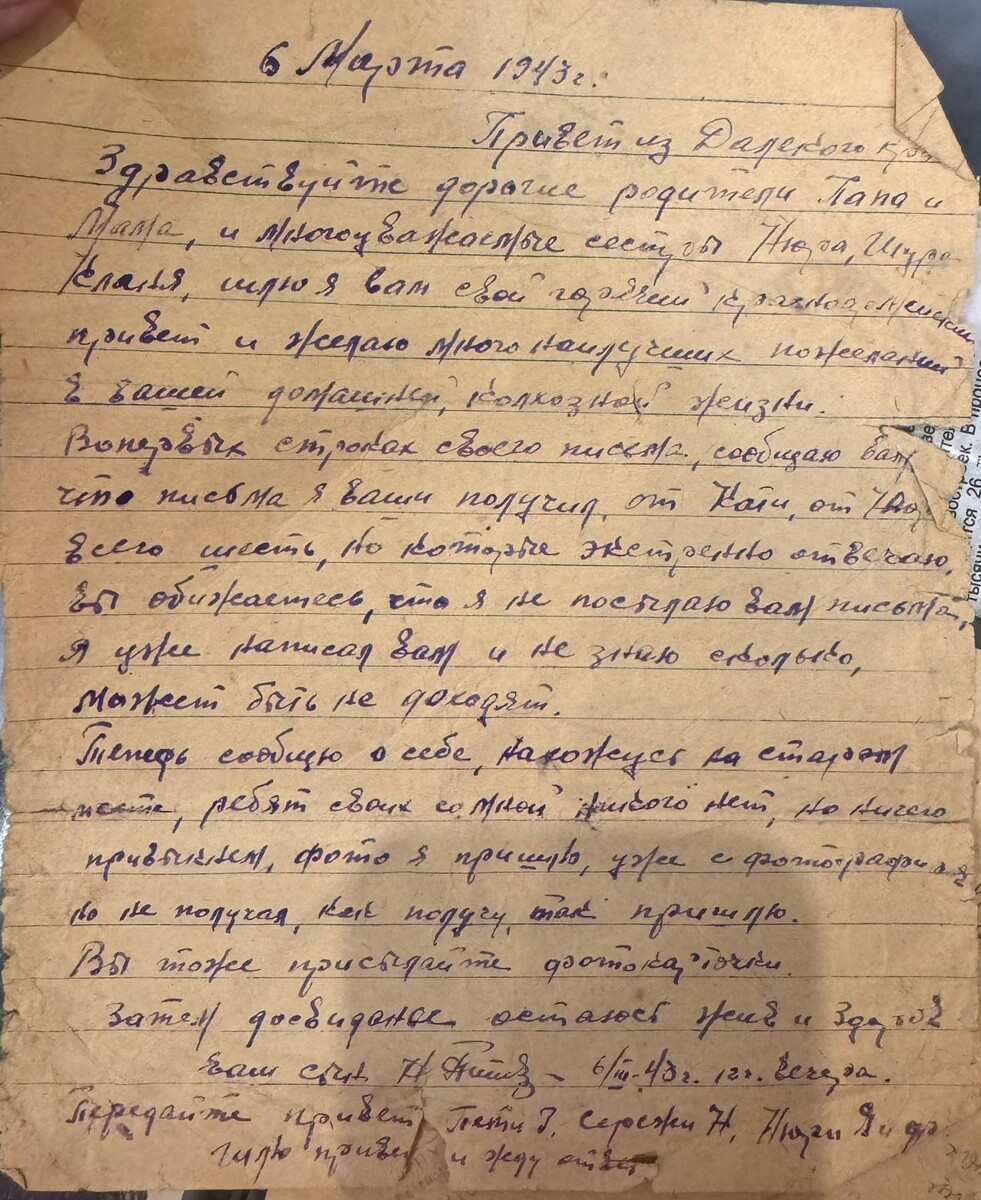 6 Марта 1943 г.
Привет из Далекого края
Здравствуйте дорогие родители Папа и
Мама, и многоуважаемые сестры Нюра, Шура
Клавя, шлю я вам свой горячий красноармейский
привет и желаю много наилучших пожеланий
в вашей домашней, колхозной жизни.
Вопервых строках своего письма, сообщаю вам
что письма я ваши получил, от Кати, от
всего шесть, на которые экстренно отвечаю,
вы обижаетесь, что я не посылаю вам письма,
я уже написал вам и не знаю сколько,
может быть не доходят.
Теперь сообщу о себе, нахожусь на старом
месте, ребят своих со мной никого нет, но ничего
привыкнем, фото я пришлю, уже
но не получал, как получу, так пришлю.
Вы тоже присылайте фотокарточки.
Затем досвиданье остаюсь жив и здоров
ваш сын Н 6/III-43 г. 12 г. вечера.
Передайте привет Пети Сережи Н, Нюри Я и др
шлю привет и жду ответ
тысячи
ится 26
ек. В